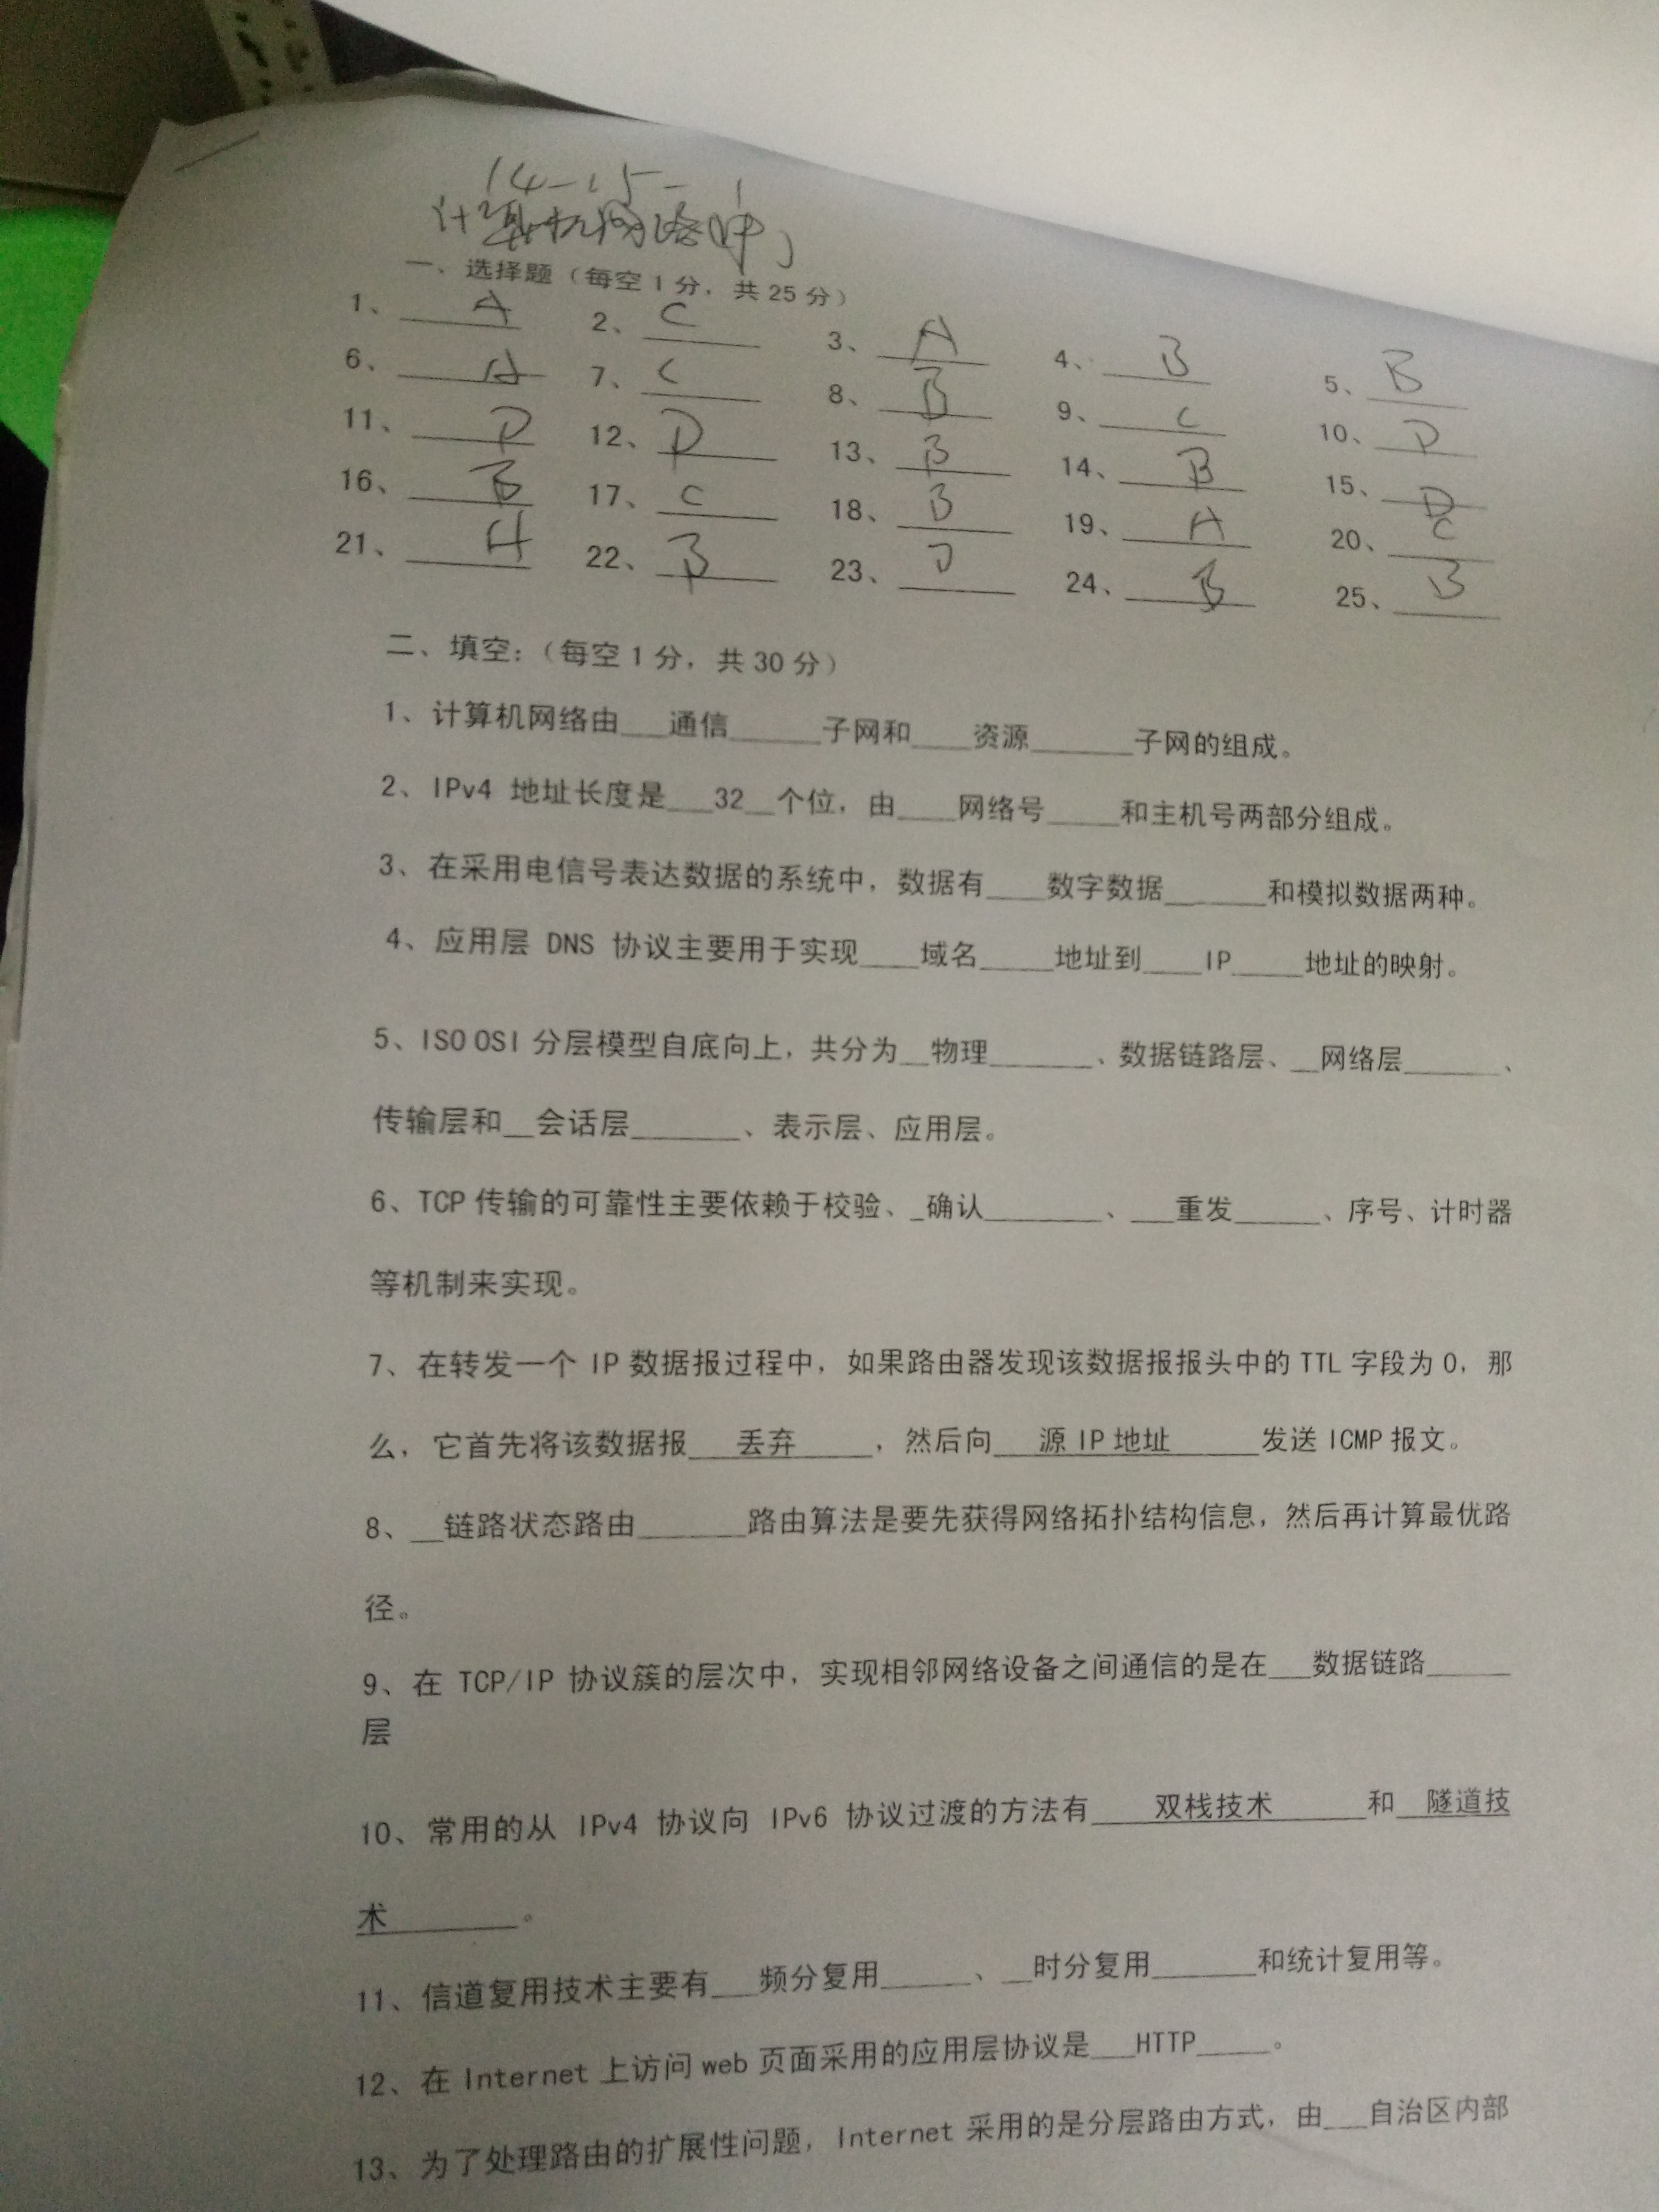 14-15-1
计算机网络(中)
一、选择题（每空1分，共25分）
1、 A 2、 C 3、 A 4、 B 5、 B
6、 A 7、 C 8、 B 9、 C 10、 D
11、 D 12、 D 13、 B 14、 B 15、 D
16、 B 17、 C 18、 B 19、 A 20、 C
21、 A 22、 B 23、 D 24、 B 25、 B
二、填空：（每空1分，共30分）
1、计算机网络由___通信______子网和____资源_______子网的组成。
2、IPv4 地址长度是___32__个位，由____网络号_____和主机号两部分组成。
3、在采用电信号表达数据的系统中，数据有____数字数据_______和模拟数据两种。
4、应用层 DNS 协议主要用于实现____域名_____地址到____IP_____地址的映射。
5、ISO OSI 分层模型自底向上，共分为__物理_______、数据链路层、__网络层_______、
传输层和__会话层_______、表示层、应用层。
6、TCP 传输的可靠性主要依赖于校验、_确认________、___重发______、序号、计时器
等机制来实现。
7、在转发一个 IP 数据报过程中，如果路由器发现该数据报报头中的 TTL 字段为 0，那
么，它首先将该数据报___丢弃_____，然后向___源 IP 地址______发送 ICMP 报文。
8、__链路状态路由_______路由算法是要先获得网络拓扑结构信息，然后再计算最优路
径。
9、在 TCP/IP 协议簇的层次中，实现相邻网络设备之间通信的是在___数据链路______
层
10、常用的从 IPv4 协议向 IPv6 协议过渡的方法有____双栈技术______和__隧道技
术_________。
11、信道复用技术主要有___频分复用______、__时分复用_______和统计复用等。
12、在 Internet 上访问 web 页面采用的应用层协议是___HTTP_____。
13、为了处理路由的扩展性问题，Internet 采用的是分层路由方式，由___自治区内部